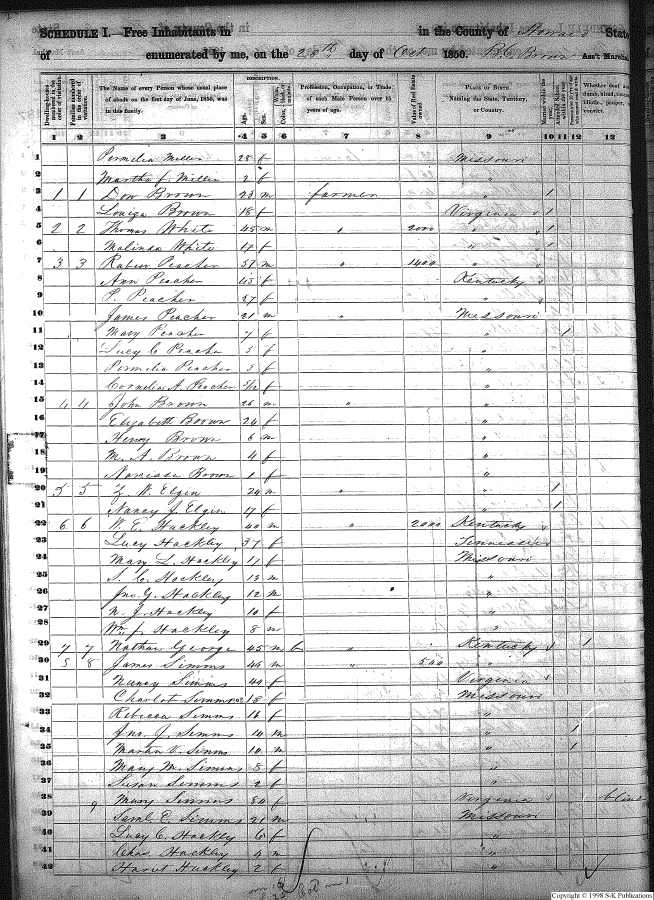 SCHEDULE I.—Free Inhabitants in in the County of Howard State
of enumerated by me, on the 28th day of Oct 1850. Brown Ass't Marshal
Dwelling-houses numbered in the order of visitation.
Families numbered in the order of visitation.
The Name of every Person whose usual place of abode on the first day of June, 1850, was in this family.
DESCRIPTION.
Age.
Sex.
Color, White, black, or mulatto.
Profession, Occupation, or Trade of each Male Person over 15 years of age.
Value of Real Estate owned.
PLACE OF BIRTH. Naming the State, Territory, or Country.
Married within the year.
Attended School within the year.
Whether deaf and dumb, blind, insane, idiotic, pauper, or convict.
1 2 3 4 5 6 7 8 9 10 11 12 13
1 Permelia Miller 28 f Missouri
2 Martha J. Miller 2 f "
3 1 1 Dow Brown 23 m farmer " 1
4 Louiza Brown 18 f Virginia 1
5 2 2 Thomas White 45 m " 2000 " 1
6 Malinda White 17 f " 1
7 3 3 Peacher 57 m " 1400 "
8 Ann Peacher 45 f Kentucky
9 P. Peacher 27 f "
10 James Peacher 21 m " Missouri
11 Mary Peacher 7 f " 1
12 Lucy C Peacher 5 f "
13 Permelia Peacher 3 f "
14 Cornelia A. Peacher 5/12 f "
15 4 4 John Brown 26 m " "
16 Elizabeth Brown 24 f "
17 Henry Brown 6 m "
18 M. A. Brown 4 f "
19 Narcissa Brown 1 f "
20 5 5 W. Elgin 24 m " " 1
21 Nancy J. Elgin 17 f " 1
22 6 6 W. E. Hackley 40 m " 2000 Kentucky
23 Lucy Hackley 37 f Tennessee
24 Mary L. Hackley 17 f Missouri
25 S. C. Hackley 13 m "
26 Jno. Y. Hackley 12 m "
27 N. J. Hackley 10 f "
28 Wm. J. Hackley 8 m "
29 7 7 Nathan George 45 m " Kentucky 1
30 8 8 James Simms 46 m " 500 "
31 Nancy Simms 40 f Virginia
32 Charlot Simms 18 f Missouri
33 Rebecca Simms 16 f "
34 Jno. J. Simms 14 m " 1
35 Martin V. Simms 10 m " 1
36 Mary M. Simms 8 f "
37 Susan Simms 2 f "
38 9 Mary Simms 80 f Virginia blind
39 Saml. C. Simms 21 m Missouri
40 Lucy C. Hackley 6 f "
41 Chas. Hackley 4 m "
42 Hackley 2 f "
Copyright © 1998 S-K Publications